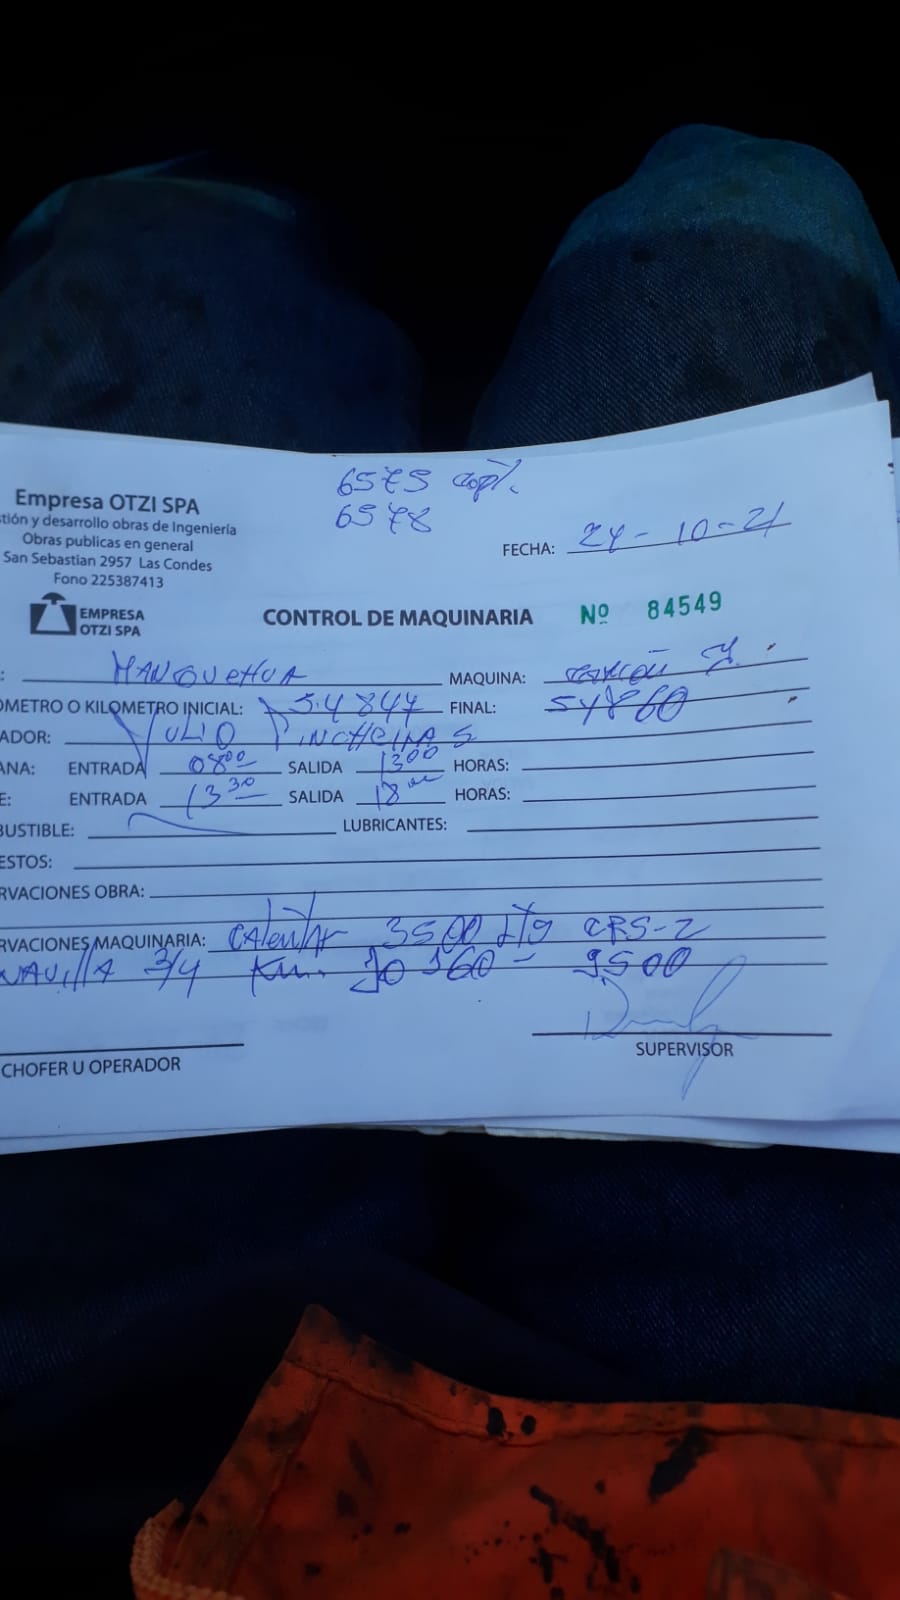 6575 copl.
6578
Empresa OTZI SPA
stión y desarrollo obras de Ingeniería
Obras publicas en general
San Sebastian 2957 Las Condes
Fono 225387413
FECHA: 24-10-21
EMPRESA
OTZI SPA
CONTROL DE MAQUINARIA Nº 84549
: MANQUEHUA MAQUINA:
OMETRO O KILOMETRO INICIAL: 54847 FINAL: 54860
ADOR: JULIO PINCHEIRA S
ANA: ENTRADA 08 00 SALIDA 13 00 HORAS:
E: ENTRADA 13 30 SALIDA 18 00 HORAS:
BUSTIBLE: LUBRICANTES:
ESTOS:
RVACIONES OBRA:
RVACIONES MAQUINARIA: Calentar 3500 Ltg CRS-2
3/4 Km. 160 - 9500
CHOFER U OPERADOR
SUPERVISOR